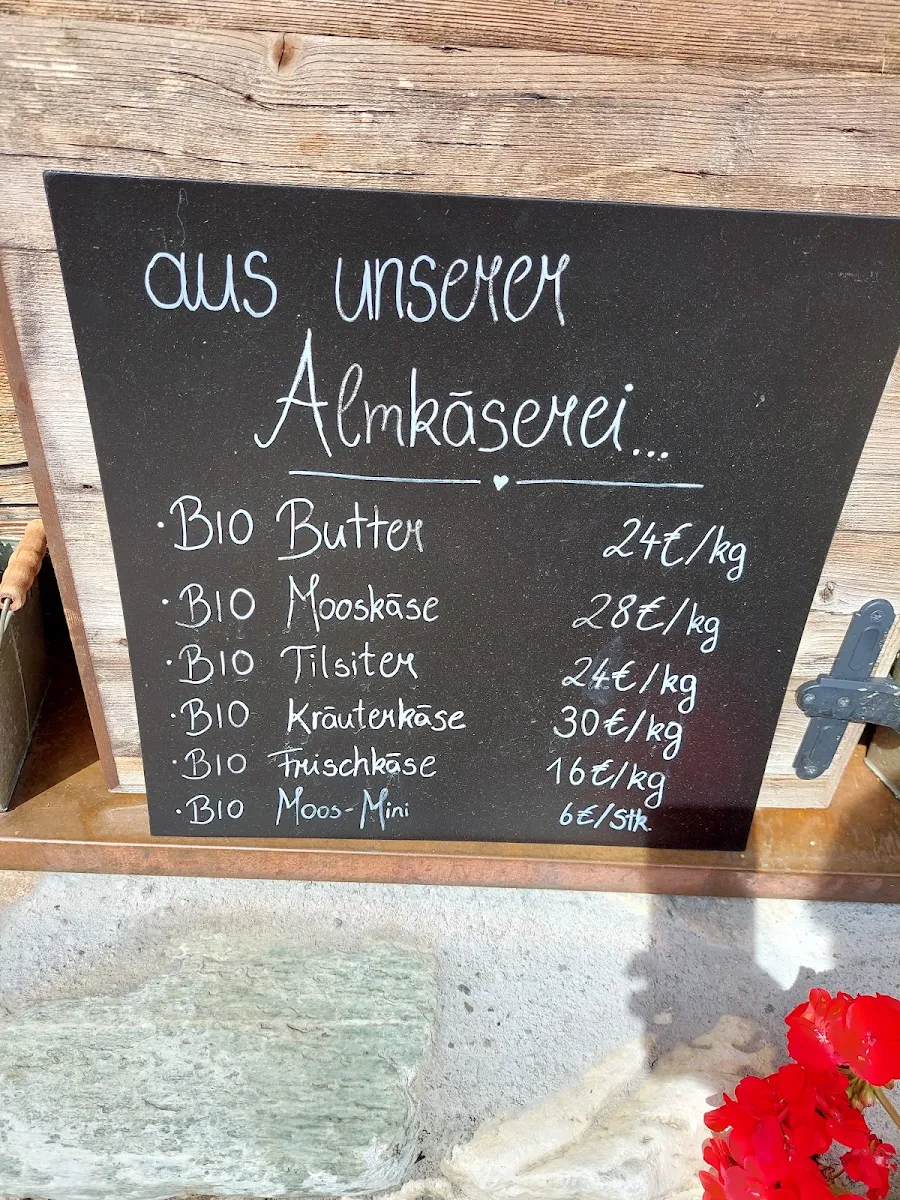 aus unserer
Almkäserei...
· BIO Butter 24€/kg
· BIO Mooskäse 28€/kg
· BIO Tilsiter 24€/kg
· BIO Kräuterkäse 30€/kg
· BIO Frischkäse 16€/kg
· BIO Moos-Mini 6€/Stk.